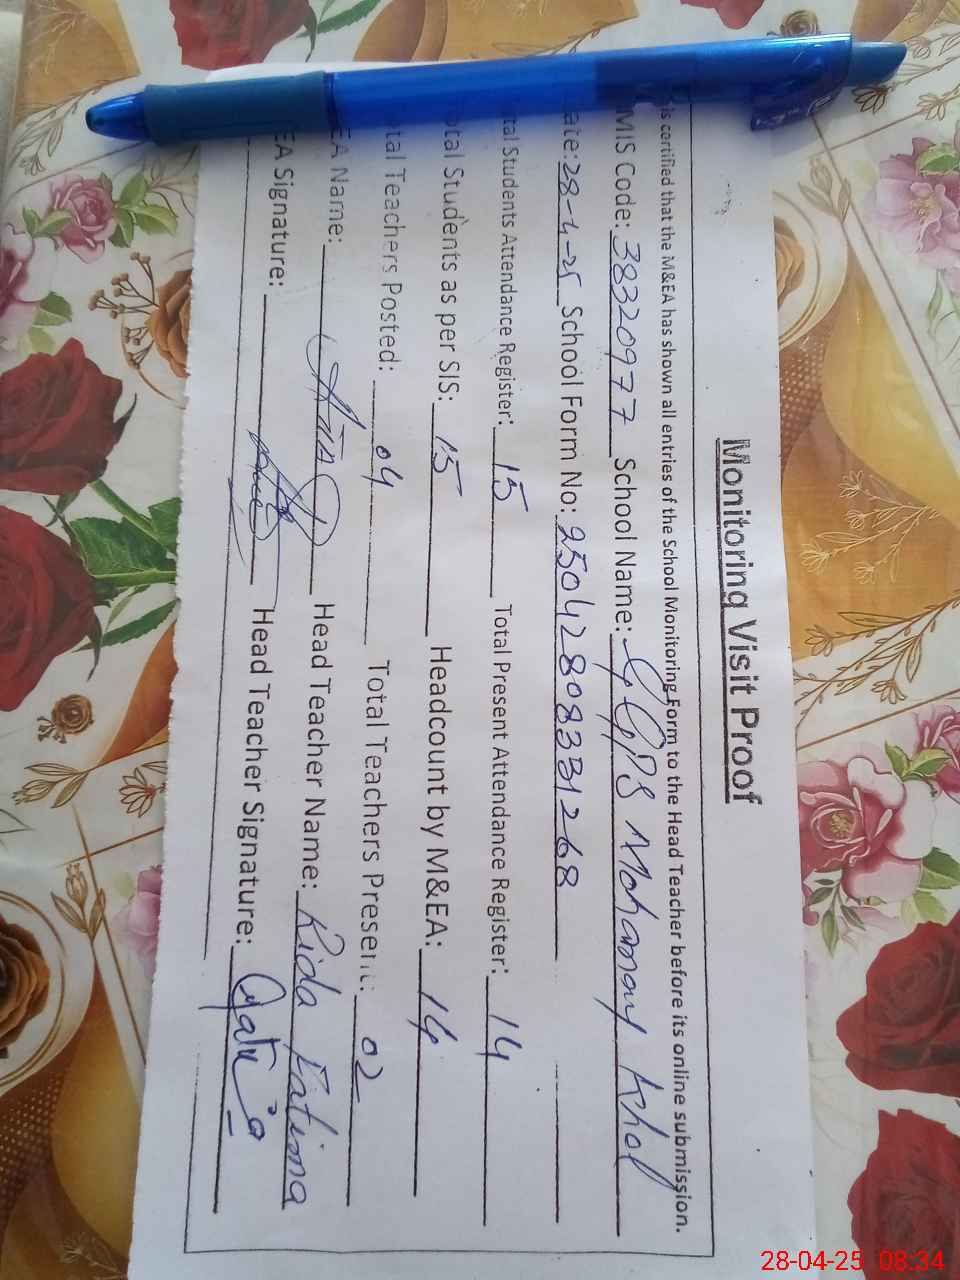 Monitoring Visit Proof
is certified that the M&EA has shown all entries of the School Monitoring Form to the Head Teacher before its online submission.
MIS Code: 38320977 School Name: GGPS Mohamay Khel
ate: 28-4-25 School Form No: 25042808331268
tal Students Attendance Register: 15 Total Present Attendance Register: 14
otal Students as per SIS: 15 Headcount by M&EA: 14
tal Teachers Posted: 04 Total Teachers Present: 02
EA Name: Head Teacher Name: Rida Fatima
EA Signature: Head Teacher Signature:
28-04-25 08:34